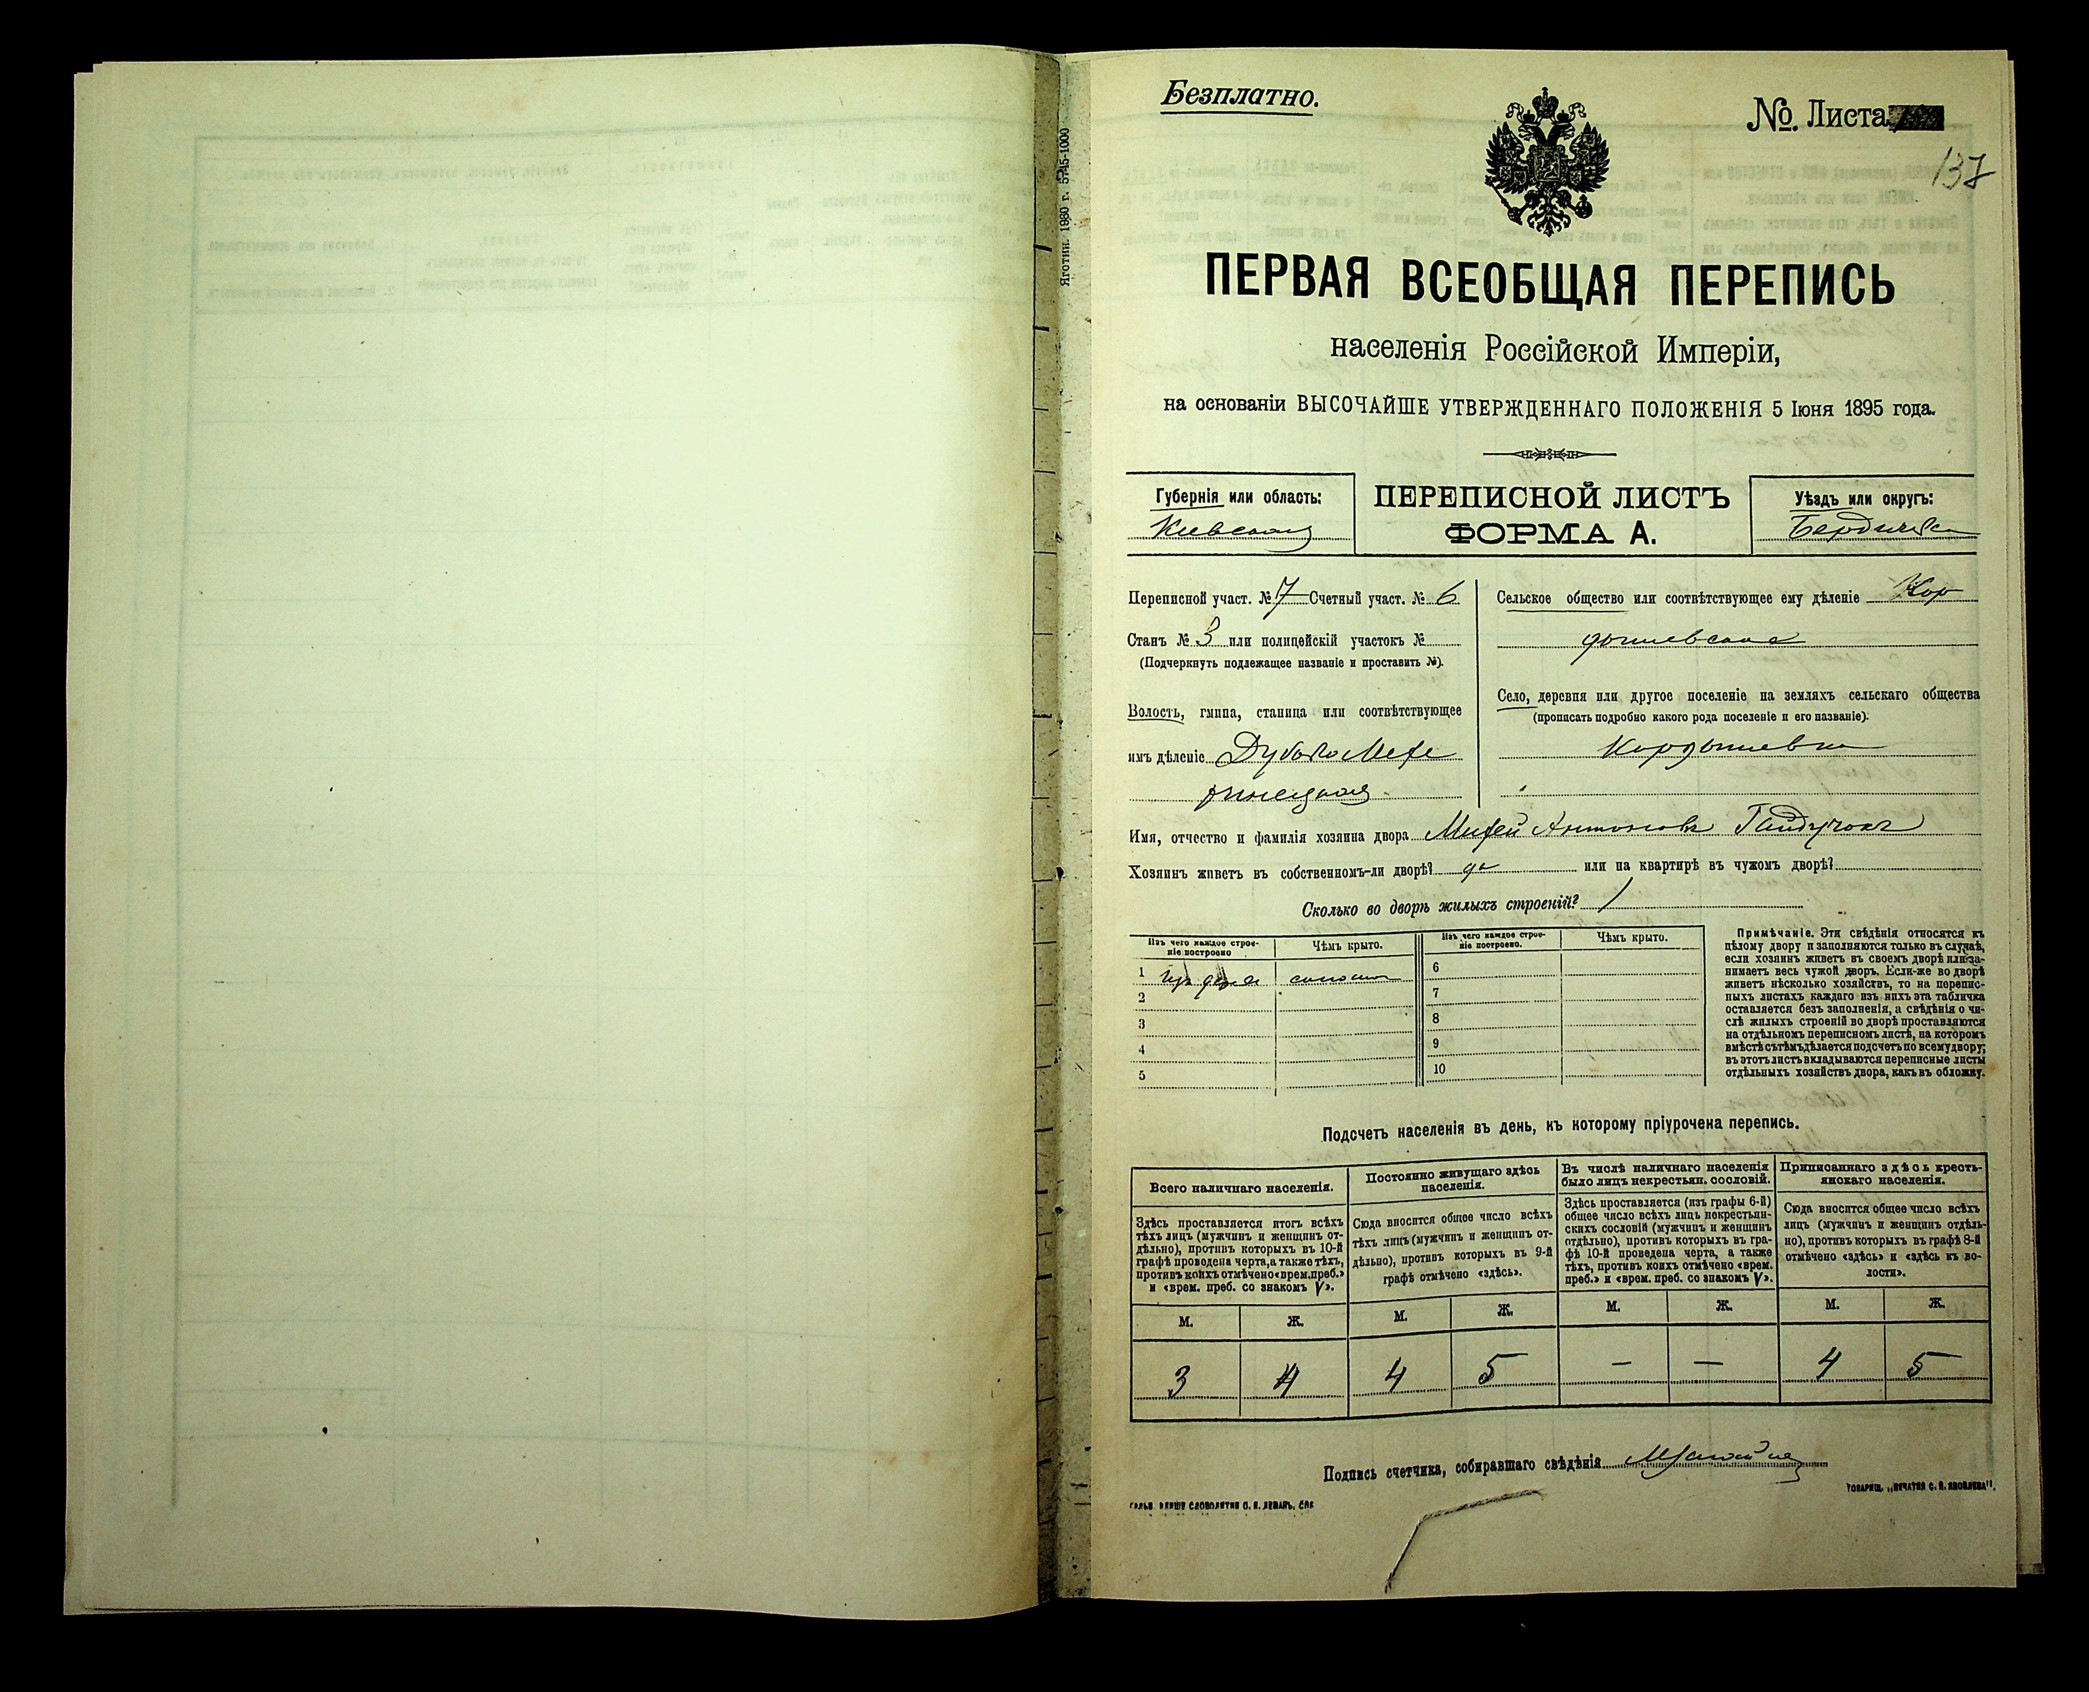 Яготин. 1980 г. 5745-1000
Безплатно.
№. Листа
137
ПЕРВАЯ ВСЕОБЩАЯ ПЕРЕПИСЬ
населенія Россійской Имперіи,
на основаніи ВЫСОЧАЙШЕ УТВЕРЖДЕННАГО ПОЛОЖЕНІЯ 5 Іюня 1895 года.
Губернія или область:
Киевская
ПЕРЕПИСНОЙ ЛИСТЪ
ФОРМА А.
Уѣздъ или округъ:
Бердичевск
Переписной участ. № 7 Счетный участ. № 6
Станъ № 3 или полицейскій участокъ №
(Подчеркнуть подлежащее названіе и проставить №).
Волость, гмина, станица или соотвѣтствующее
имъ дѣленіе
Сельское общество или соотвѣтствующее ему дѣленіе Кор
дышевское
Село, деревня или другое поселеніе на земляхъ сельскаго общества
(прописать подробно какого рода поселеніе и его названіе):
Кордышевка
Имя, отчество и фамилія хозяина двора Михей Антоновъ Гайдучокъ
Хозяинъ живетъ въ собственномъ-ли дворѣ? да или на квартирѣ въ чужомъ дворѣ?
Сколько во дворѣ жилыхъ строеній? 1
Изъ чего каждое строе-
ніе построено
Чѣмъ крыто.
Изъ чего каждое строе-
ніе построено.
Чѣмъ крыто.
1 изъ дерева соломою
2
3
4
5
6
7
8
9
10
Примѣчаніе. Эти свѣдѣнія относятся къ
цѣлому двору и заполняются только въ случаѣ,
если хозяинъ живетъ въ своемъ дворѣ или за-
нимаетъ весь чужой дворъ. Если-же во дворѣ
живетъ нѣсколько хозяйствъ, то на перепис-
ныхъ листахъ каждаго изъ нихъ эта табличка
оставляется безъ заполненія, а свѣдѣнія о чи-
слѣ жилыхъ строеній во дворѣ проставляются
на отдѣльномъ переписномъ листѣ, на которомъ
вмѣстѣ съ тѣмъ дѣлается подсчетъ по всему двору;
въ этотъ листъ вкладываются переписные листы
отдѣльныхъ хозяйствъ двора, какъ въ обложку.
Подсчетъ населенія въ день, къ которому пріурочена перепись.
Всего наличнаго населенія.
Здѣсь проставляется итогъ всѣхъ
тѣхъ лицъ (мужчинъ и женщинъ от-
дѣльно), противъ которыхъ въ 10-й
графѣ проведена черта, а также тѣхъ,
противъ коихъ отмѣчено «врем. преб.»
и «врем. преб. со знакомъ V».
Постоянно живущаго здѣсь
населенія.
Сюда вносится общее число всѣхъ
тѣхъ лицъ (мужчинъ и женщинъ от-
дѣльно), противъ которыхъ въ 9-й
графѣ отмѣчено «здѣсь».
Въ числѣ наличнаго населенія
было лицъ некрестьян. сословій.
Здѣсь проставляется (изъ графы 6-й)
общее число всѣхъ лицъ некрестьян-
скихъ сословій (мужчинъ и женщинъ
отдѣльно), противъ которыхъ въ гра-
фѣ 10-й проведена черта, а также
тѣхъ, противъ коихъ отмѣчено «врем.
преб.» и «врем. преб. со знакомъ V».
Приписаннаго здѣсь кресть-
янскаго населенія.
Сюда вносится общее число всѣхъ
лицъ (мужчинъ и женщинъ отдѣль-
но), противъ которыхъ въ графѣ 8-й
отмѣчено «здѣсь» и «здѣсь къ во-
лости».
М. Ж. М. Ж. М. Ж. М. Ж.
3 4 4 5 — — 4 5
Подпись счетчика, собиравшаго свѣдѣнія
ГАЛЬВ. КЛИШЕ СЛОВОЛИТНИ О. И. ЛЕМАНЪ, СПБ
ТОВАРИЩ. „ПЕЧАТНЯ С. П. ЯКОВЛЕВА".